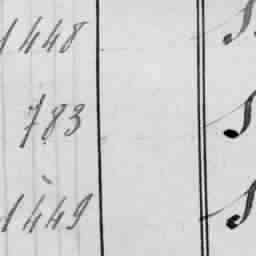 1448
783
1449